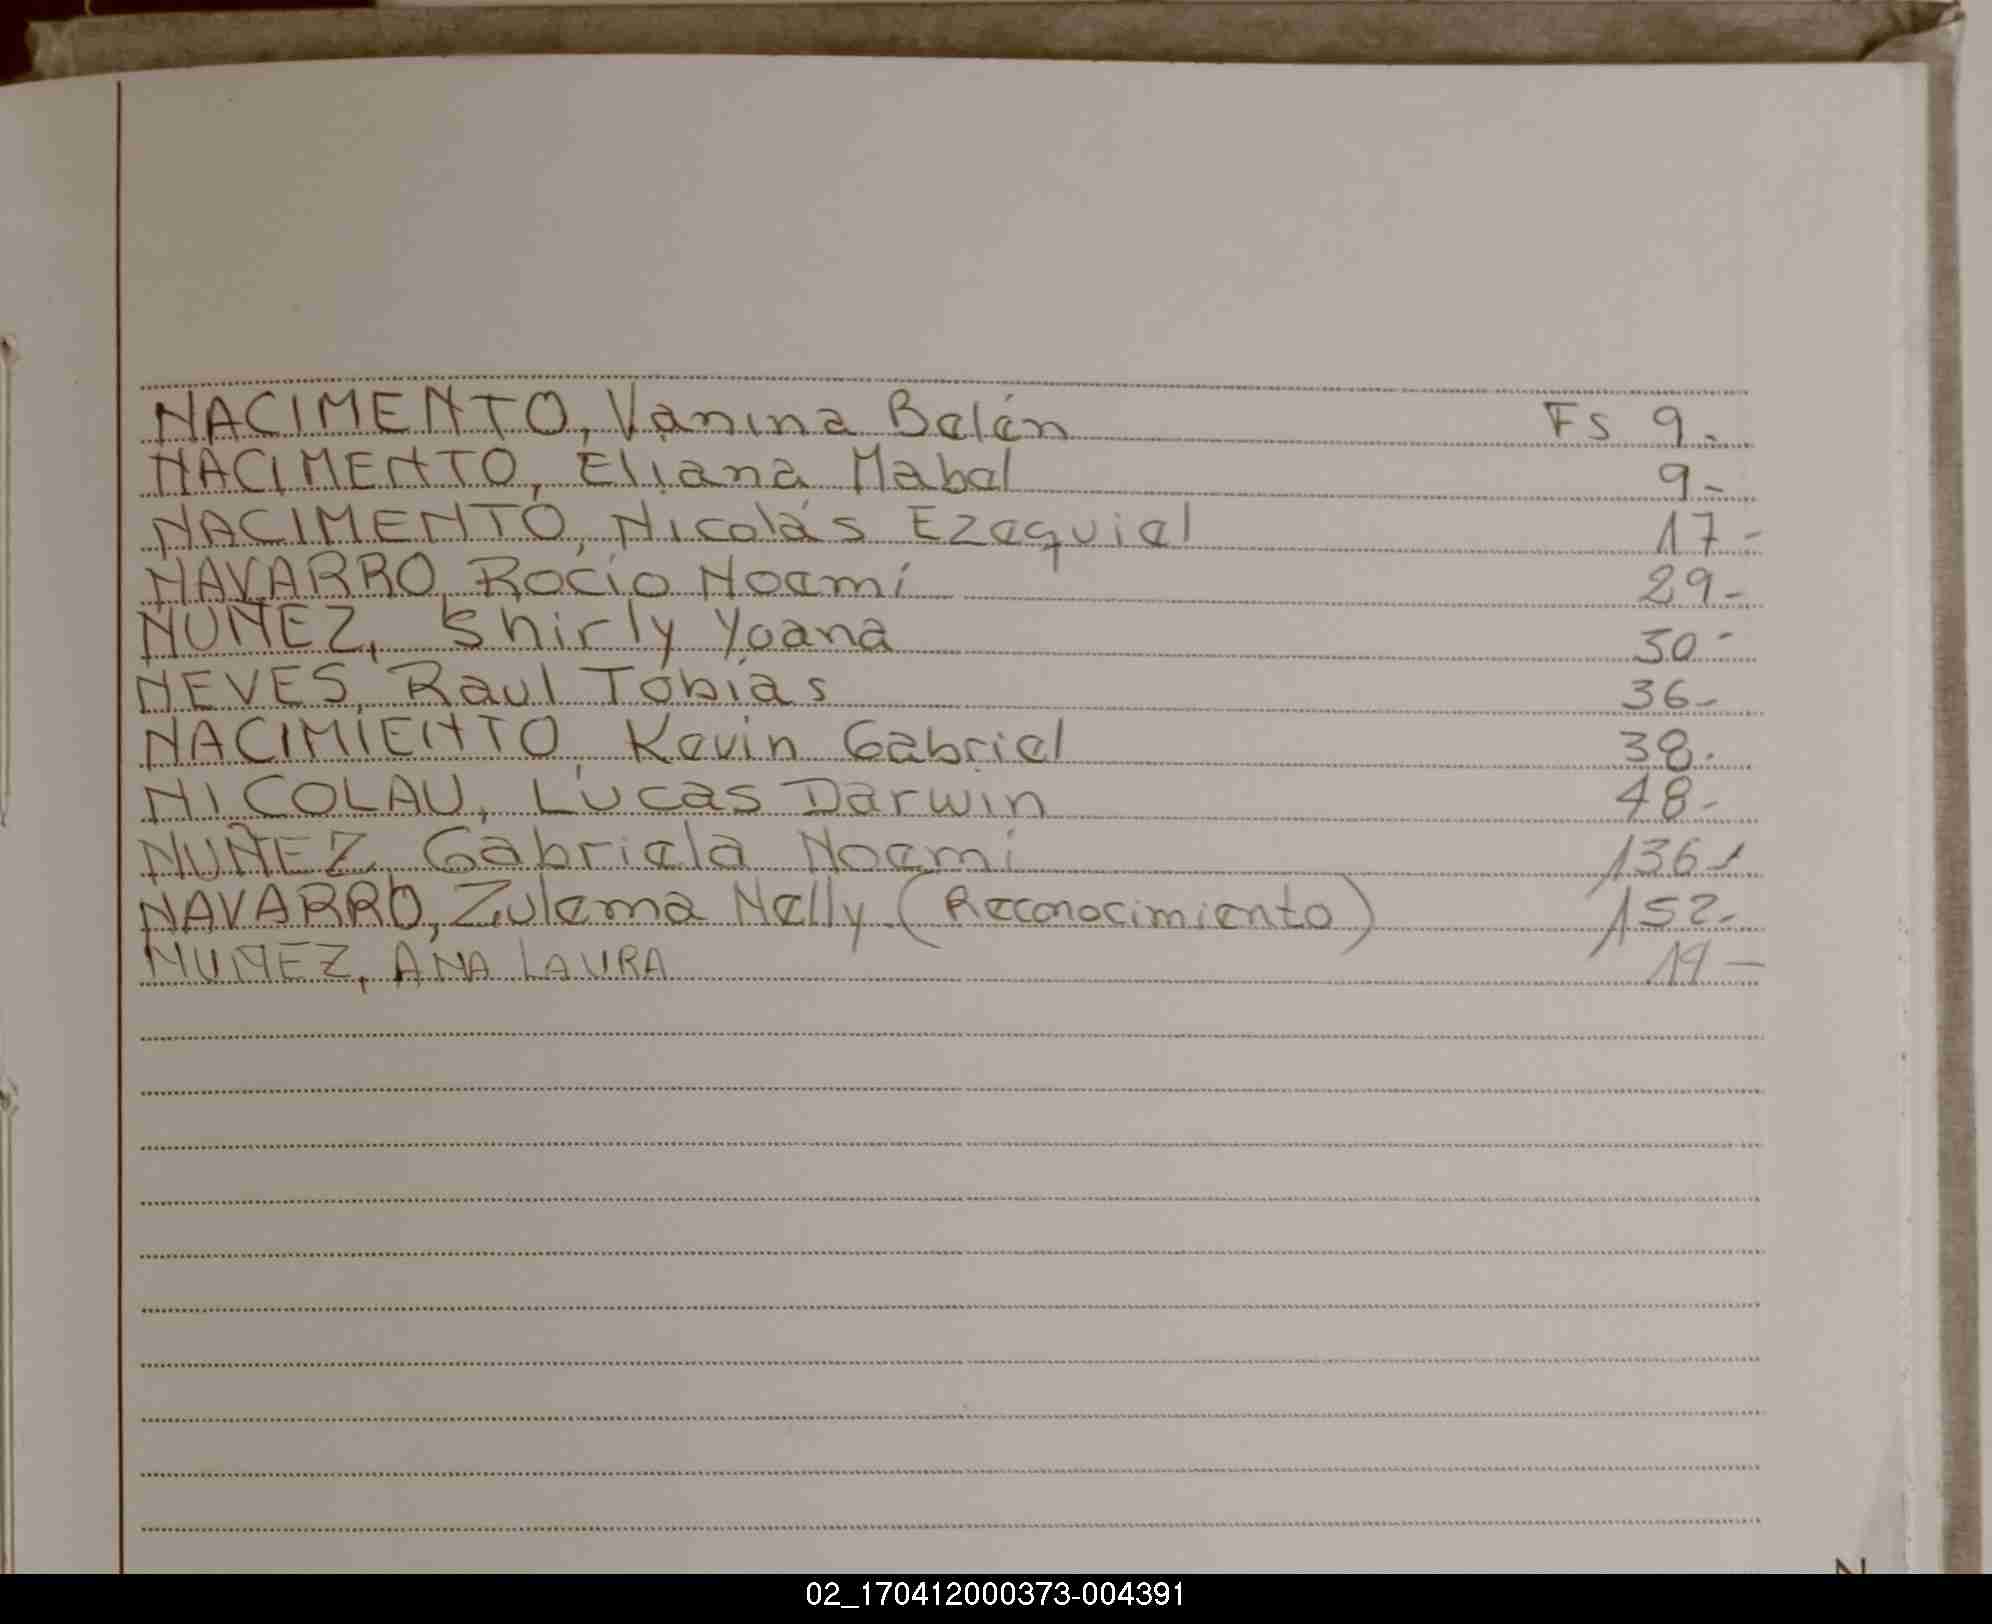 NACIMENTO, Vanina Belén Fs 9.
NACIMENTO, Eliana Mabel 9-
NACIMENTO, Nicolás Ezequiel 17-
NAVARRO, Rocío Noemí 29-
NUÑEZ, Shirly Yoana 30-
NEVES, Raul Tobias 36-
NACIMIENTO, Kevin Gabriel 38.
NICOLAU, Lucas Darwin 48-
NUÑEZ, Gabriela Noemí 136-
NAVARRO, Zulema Nelly (Reconocimiento) 152-
NUÑEZ, ANA LAURA 19-
N
02_170412000373-004391